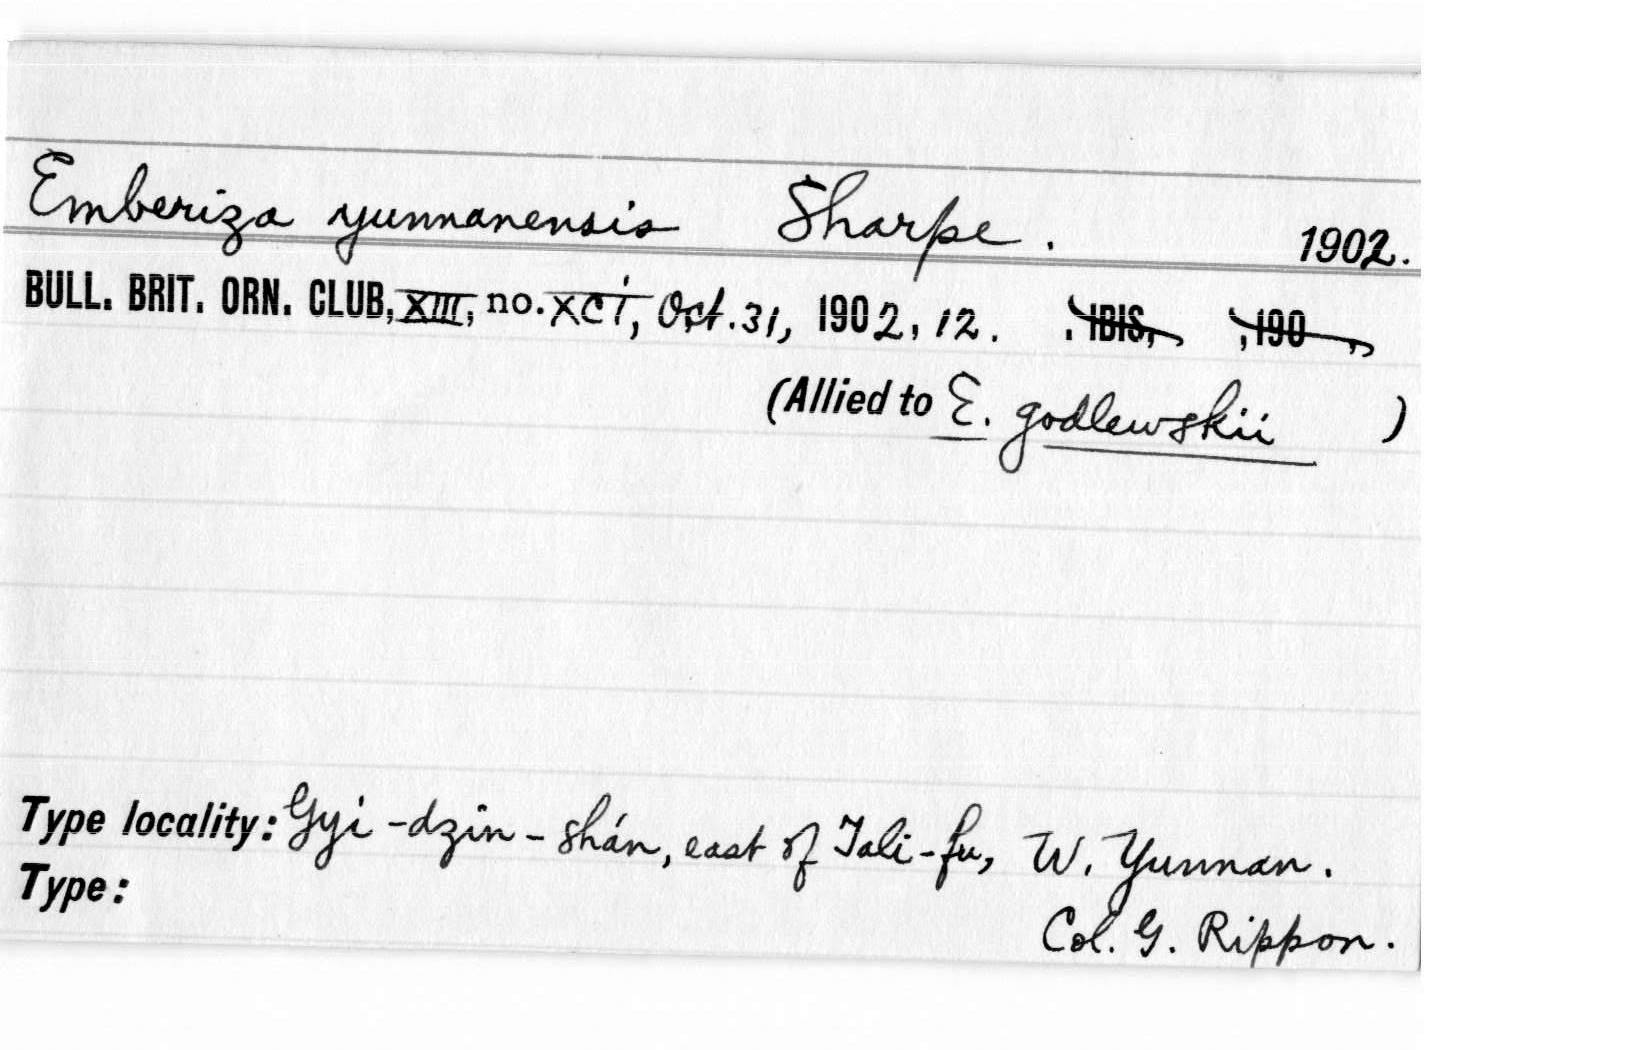 Emberiza yunnanensis Sharpe. 1902.
BULL. BRIT. ORN. CLUB, XIII, no. XCI, Oct. 31, 1902, 12. . IBIS, , 190 ,
(Allied to E. godlewskii )
Type locality: Gyi-dzin-shán, east of Tali-fu, W. Yunnan.
Type:
Col. G. Rippon.